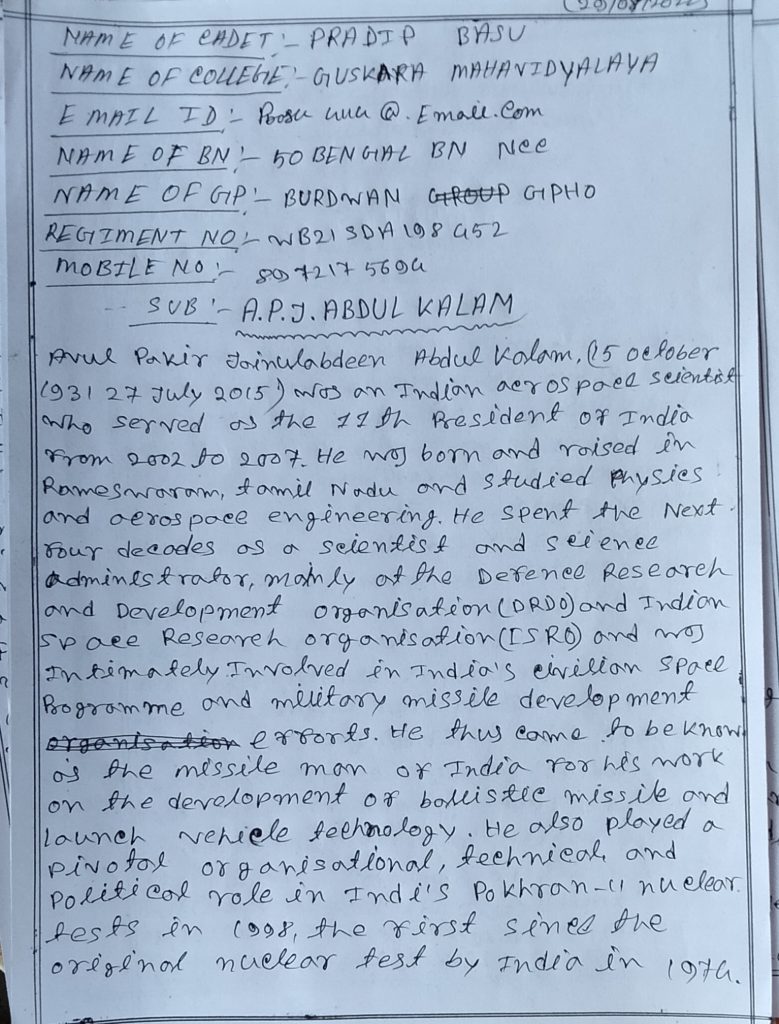 NAME OF CADET :- PRADIP BASU
NAME OF COLLEGE :- GUSKARA MAHAVIDYALAYA
E MAIL ID :- @. Email.Com
NAME OF BN :- 50 BENGAL BN NCC
NAME OF GP :- BURDWAN GROUP GPHQ
REGIMENT NO :- WB21SDA198452
MOBILE NO :- 8972175694
SUB :- A.P.J. ABDUL KALAM
Avul Pakir Jainulabdeen Abdul Kalam, (15 october
1931 27 July 2015) was an Indian aerospace scientist
who served as the 11th President of India
from 2002 to 2007. He was born and raised in
Rameswaram, tamil Nadu and studied Physics
and aerospace engineering. He spent the Next
four decades as a scientist and science
administrator, mainly at the Defence Research
and Development organisation (DRDO) and Indian
space Research organisation (ISRO) and was
Intimately Involved in India's civilian space
Programme and military missile development
organisation efforts. He thus came to be know
as the missile man of India for his work
on the development of ballistic missile and
launch vehicle technology. He also played a
pivotal organisational, technical, and
political role in Indi's Pokhran-II nuclear
tests in 1998, the first since the
original nuclear test by India in 1974.